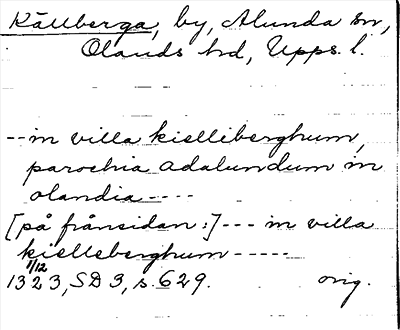 Källberga, by, Alunda sn,
Olands hd, Upps. l.
-- in villa kielliberghum,
parochia adalundum in
olandia ----
[på frånsidan:] --- in villa
kielleberghum -----
1/12
1323, SD 3, s. 629. orig.